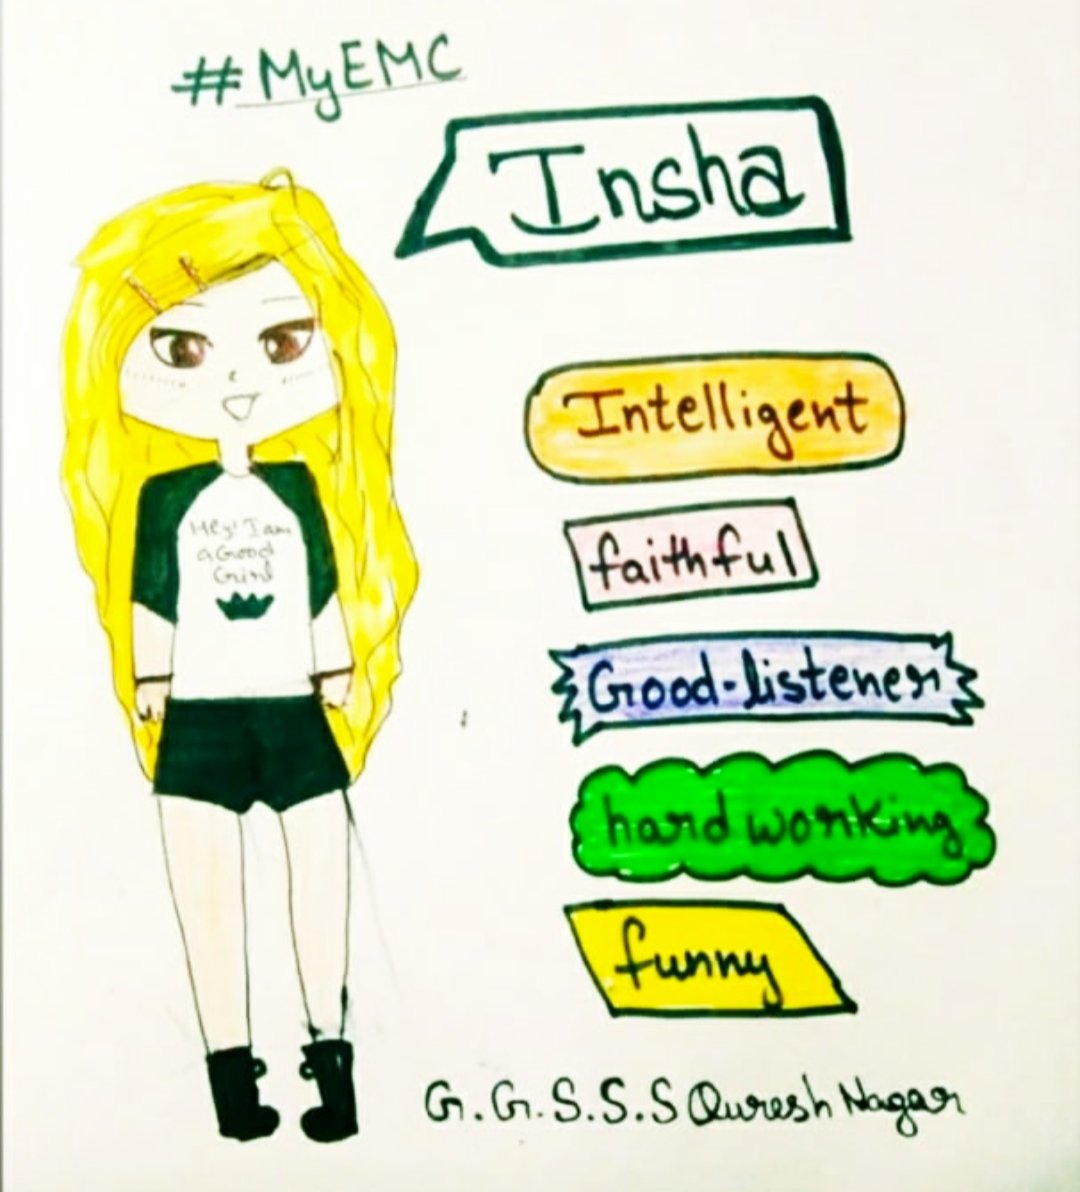 #MyEMC
Insha
Intelligent
faithful
Hey! I am
a Good
Girl
Good-listener
hard working
funny
G.G.S.S.S Quresh Nagar